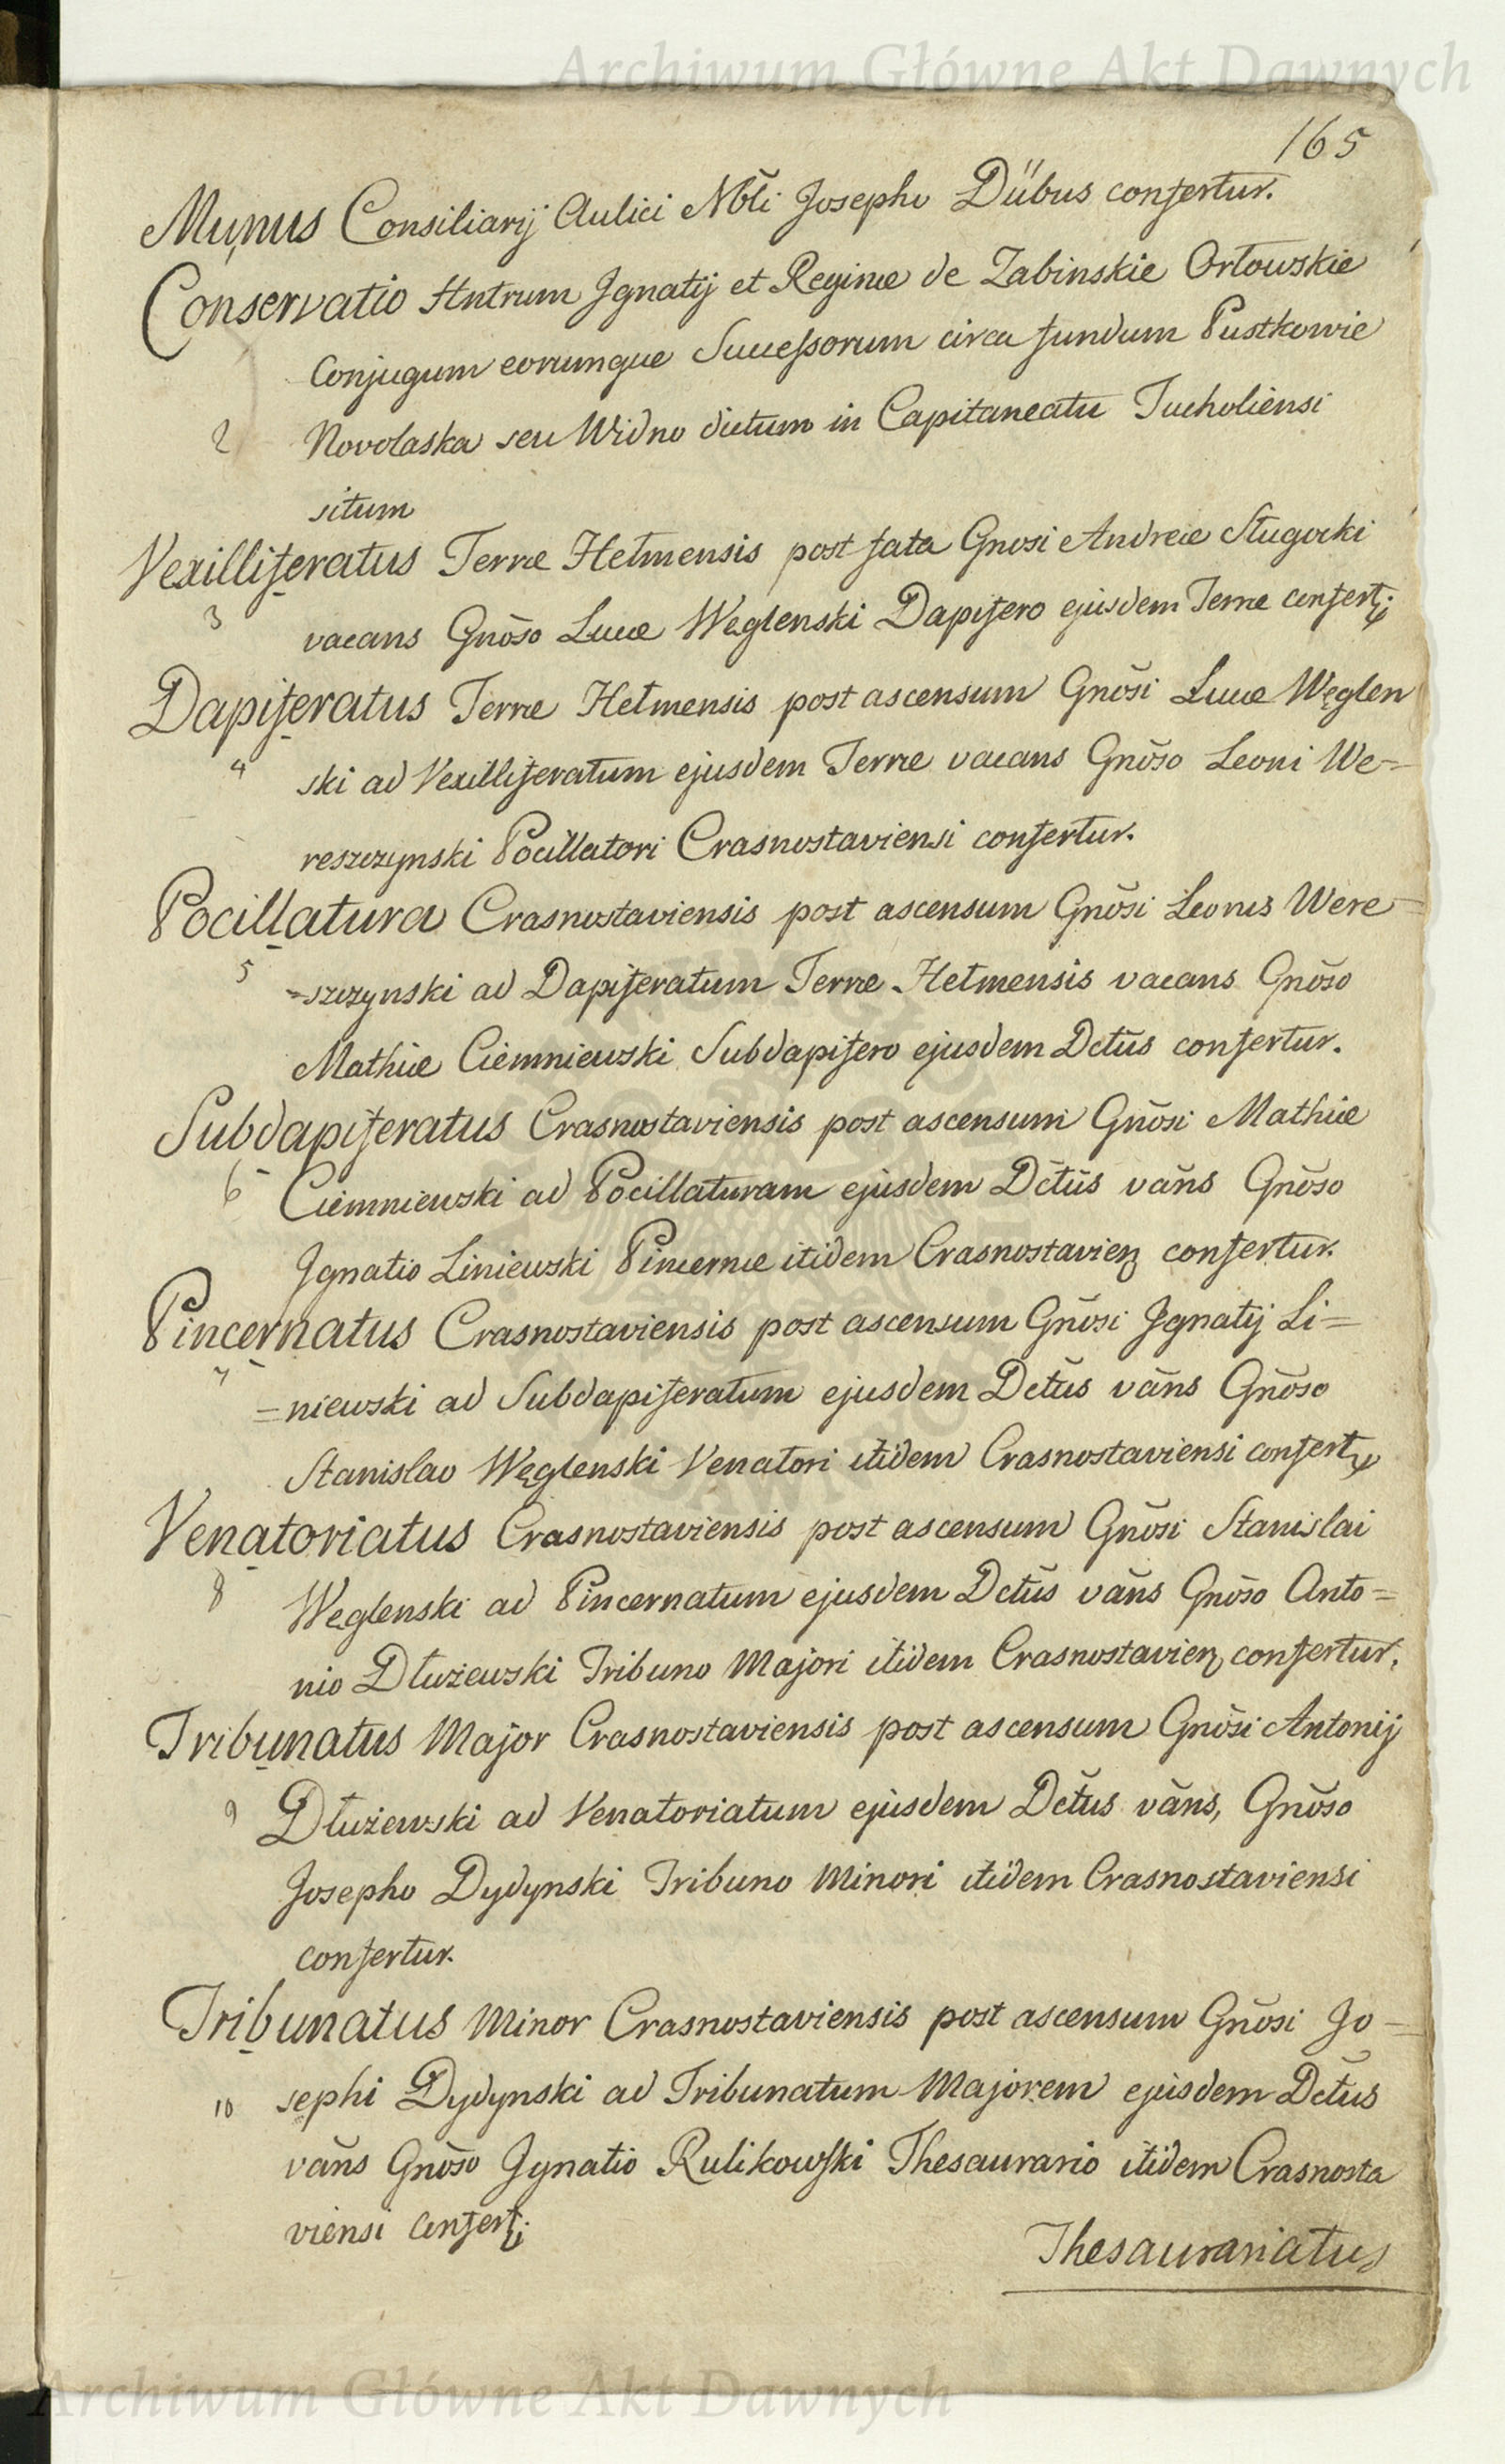 Archiwum Główne Akt Dawnych
165
Munus Consiliarij Aulici Nb̃li Josepho Dübus confertur.
Conservatio Hntrum Jgnatij et Reginæ de Zabinskie Orłowskie
Conjugum eorumque Successorum circa fundum Pustkowie
2 Novolaska seu Widno dictum in Capitaneatu Tucholiensi
situm
Vexilliferatus Terræ Hełmensis post fata Gnosi Andreæ Sługocki
3 vacans Gnõso Lucæ Węglenski Dapifero ejusdem Terræ confert;
Dapiferatus Terræ Hełmensis post ascensum Gnõsi Lucæ Węglen
4 ski ad Vexilliferatum ejusdem Terræ vacans Gnõso Leoni We=
reszczynski Pocillatori Crasnostaviensi confertur.
Pocillatura Crasnostaviensis post ascensum Gnõsi Leonis Were=
5 =szczynski ad Dapiferatum Terræ Hełmensis vacans Gnõso
Mathiæ Ciemniewski Subdapifero ejusdem Dctũs confertur.
Subdapiferatus Crasnostaviensis post ascensum Gnõsi Mathiæ
6 Ciemniewski ad Pocillaturam ejusdem Dctũs vãns Gnõso
Jgnatio Liniewski Pincernæ itidem Crasnostavieñ confertur.
Pincernatus Crasnostaviensis post ascensum Gnõsi Jgnatij Li=
7 =niewski ad Subdapiferatum ejusdem Dctũs vãns Gnõso
Stanislao Węglenski Venatori itidem Crasnostaviensi confert
Venatoriatus Crasnostaviensis post ascensum Gnõsi Stanislai
8 Węglenski ad Pincernatum ejusdem Dctũs vãns Gnõso Anto=
nio Dłużewski Tribuno Majori itidem Crasnostavieñ confertur.
Tribunatus Major Crasnostaviensis post ascensum Gnõsi Antonij
9 Dłużewski ad Venatoriatum ejusdem Dctũs vãns, Gnõso
Josepho Dydynski Tribuno Minori itidem Crasnostaviensi
confertur.
Tribunatus Minor Crasnostaviensis post ascensum Gnõsi Jo=
10 sephi Dydynski ad Tribunatum Majorem ejusdem Dctũs
vãns Gnõso Jgnatio Rulikowski Thesaurario itidem Crasnosta
viensi confert;
Thesaurariatus
Archiwum Główne Akt Dawnych